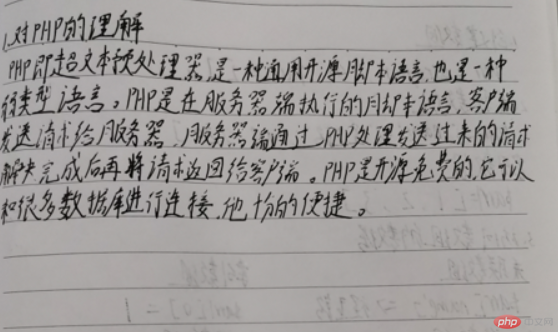 1.对PHP的理解
PHP即超文本预处理器,是一种通用开源脚本语言,也是一种
弱类型语言。PHP是在服务器端执行的脚本语言,客户端
发送请求给服务器,服务器端通过PHP处理发送过来的请求
解决完成后再将请求返回给客户端。PHP是开源免费的,它可以
和很多数据库进行连接,他十分的便捷。
php 中文网